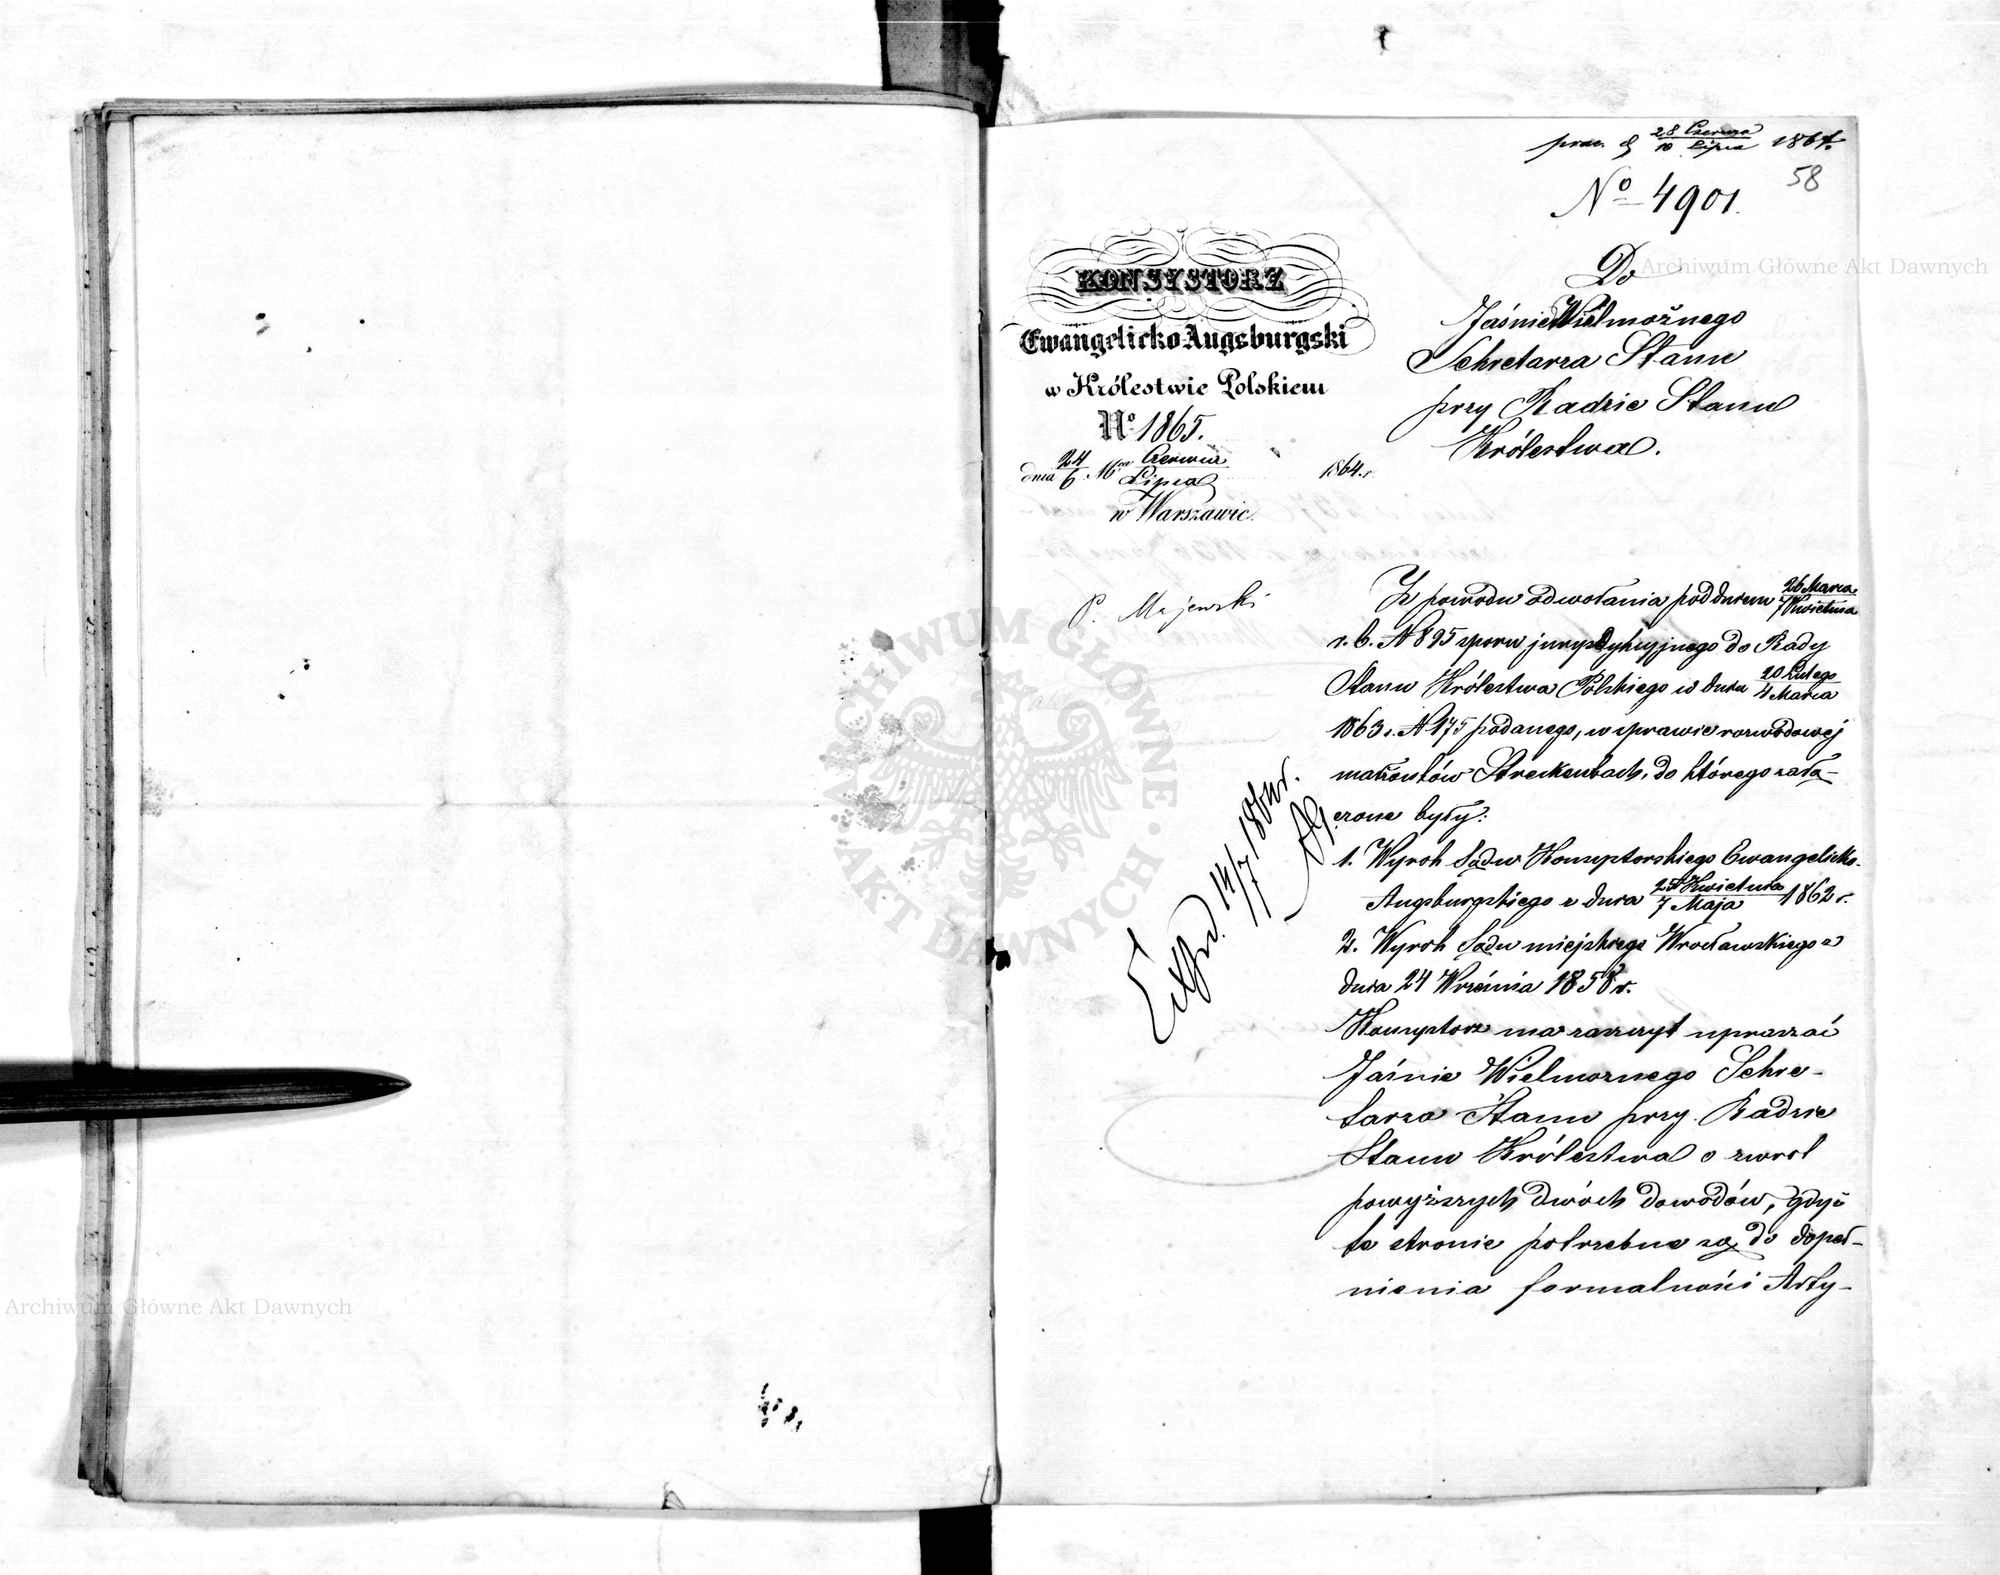 28 Czerwca
prae. d 10 Lipca 1864.
58
Nº 4901.
KONSYSTORZ
Ewangelicko Augsburgski
w Królestwie Polskiem
Nº 1865.
dnia 24/6 Mca Czerwca/Lipca 1864 r.
w Warszawie.
Do
Jaśnie Wielmożnego
Sekretarza Stanu
przy Radzie Stanu
Królestwa.
P. Majewski
Z powodu odwołania pod dniem 26 Marca/7 Kwietnia
r. b. N 895 sporu jurysdykcyjnego do Rady
Stanu Królestwa Polskiego w dniu 20 Lutego/4 Marca
1863 r. N 175 podanego, w sprawie rozwodowej
małżonków Streckenbach, do którego załą-
czone były:
1. Wyrok Sądu Konsystorskiego Ewangelicko-
Augsburgskiego z dnia 25 Kwietnia/7 Maja 1862 r.
2. Wyrok Sądu miejskiego Wrocławskiego z
dnia 24 Września 1858 r.
Konsystorz ma zaszczyt upraszać
Jaśnie Wielmoznego Sekre-
tarza Stanu przy Radzie
Stanu Królestwa o zwrot
powyższych dwóch dowodów, gdyż
te stronie potrzebne są do dopeł-
nienia formalności Arty-
14/7 1864 r.
Archiwum Główne Akt Dawnych
Archiwum Główne Akt Dawnych
ARCHIWUM GŁÓWNE
AKT DAWNYCH